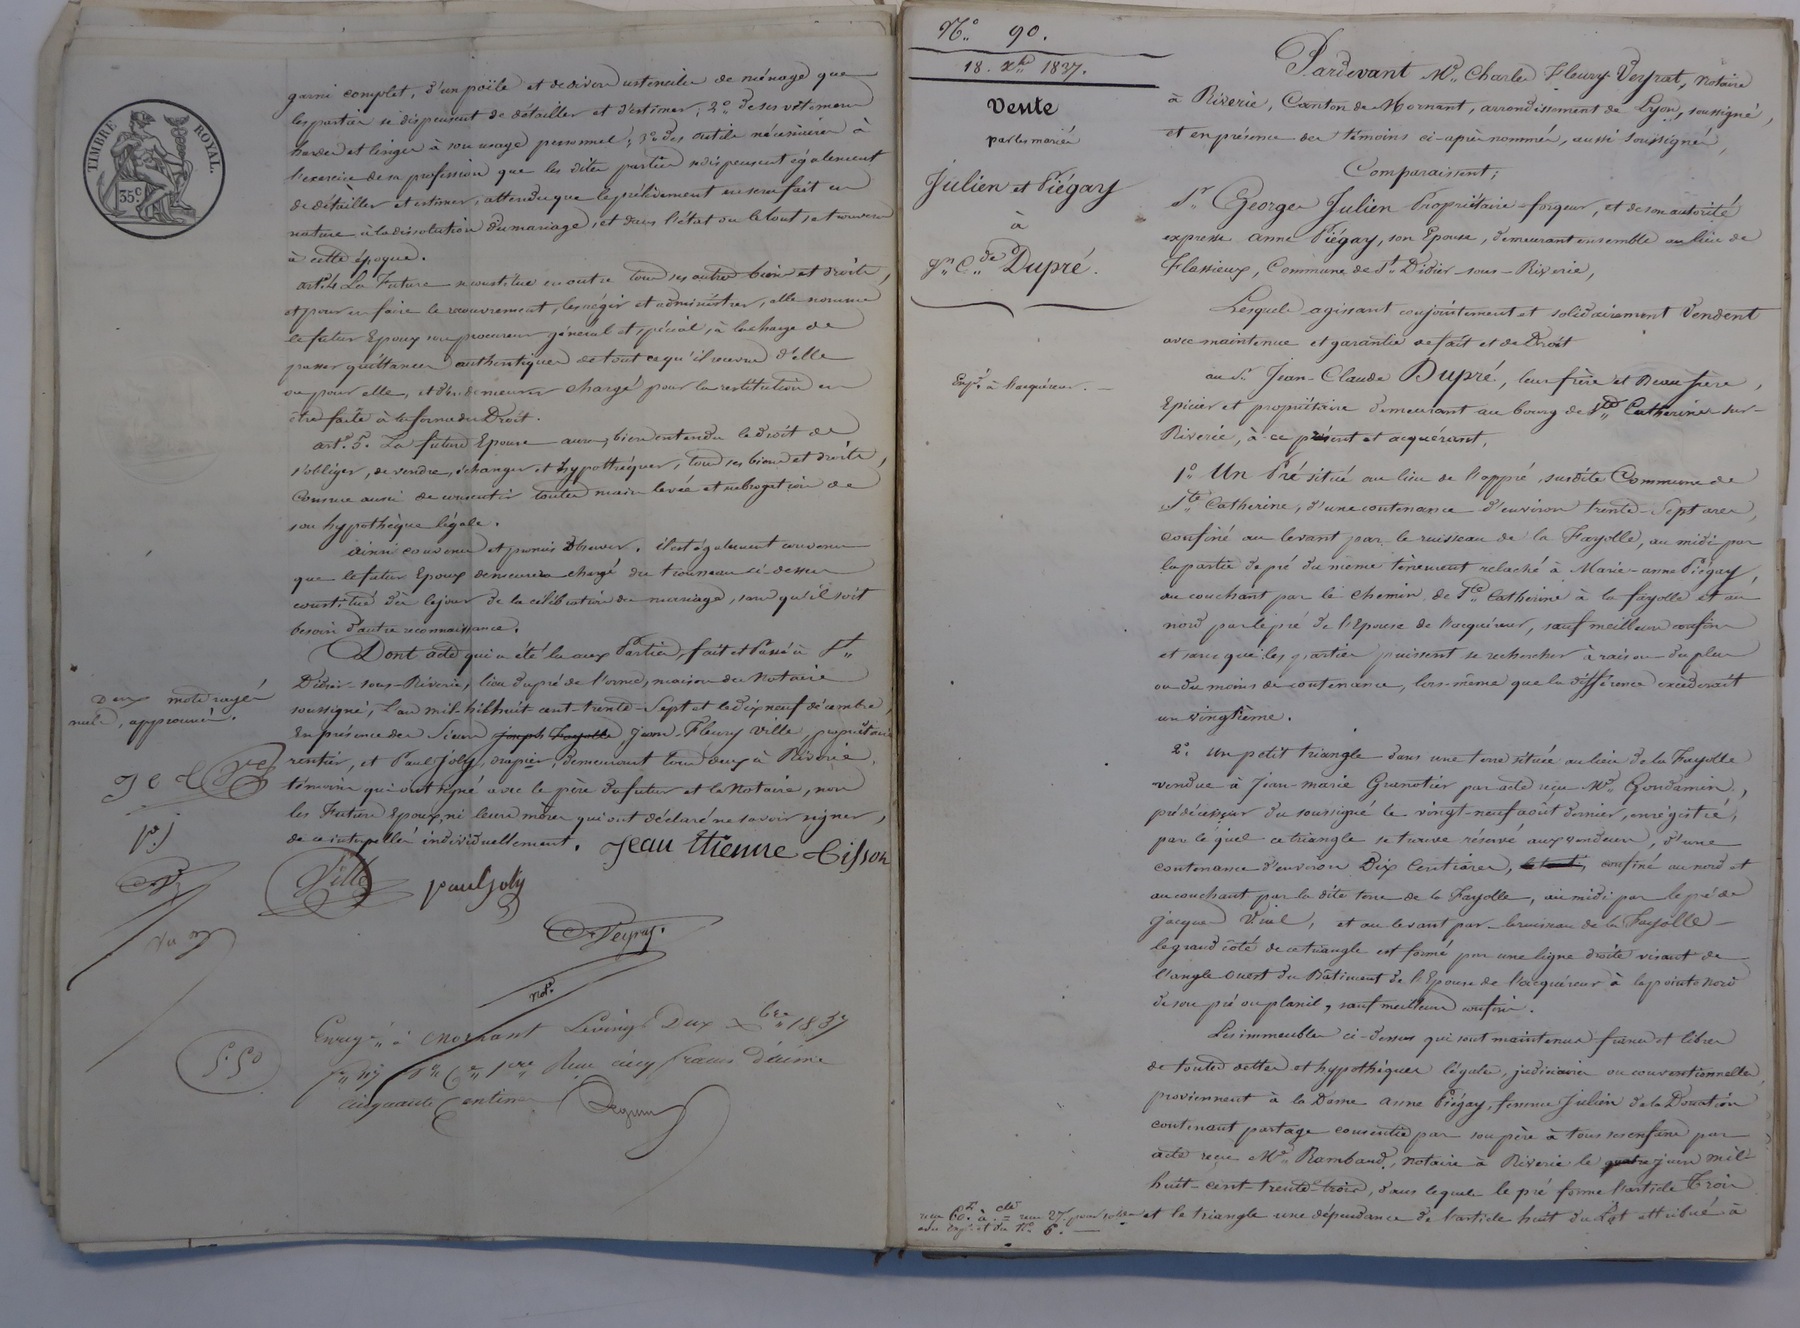 TIMBRE ROYAL
35c
garni complet, d'un poële et de divers ustenciles de ménage que
les parties se dispensent de détailler et d'estimer; 2° de ses vêtemens
hardes et linges à son usage personnel; 3° des outils nécessaires à
l'exercice de sa profession que les dites parties se dispensent également
de détailler et estimer, attendu que le prélèvement en sera fait en
nature à la dissolution du mariage, et dans l'état ou le tout se trouvera
à cette époque.
art. 4. La Future se constitue en outre tous ses autres biens et droits,
et pour en faire le recouvrement, les régir et administrer, elle nomme
le futur Epoux son procureur général et spécial, à la charge de
passer quittances authentiques de tout ce qu'il recevra d'elle
ou pour elle, et d'en demeurer chargé pour la restitution en
être faite à la forme du Droit.
art. 5. La future Epouse aura, bien entendu le droit de
s'obliger, de vendre, échanger et hypothéquer, tous ses biens et droits,
Comme aussi de consentir toutes main levée et subrogation de
son hypothèque légale.
Ainsi convenu et promis observer. il est également convenu
que le futur Epoux demeurera chargé du trousseau ci-dessus
constitué dès le jour de la célébration du mariage, sans qu'il soit
besoin d'autre reconnaissance.
Dont acte qui a été lu aux Parties, fait et Passé à St
Didier-sous-Riverie, lieu du pré de l'orme, maison du Notaire
soussigné, l'an mil-huit-cent-trente-Sept et le dix neuf décembre,
En présence des Sieurs Joseph Fayolle Jean-Fleury Ville, propriétaire
rentier, et Paul Joly, drapier, demeurant tous deux à Riverie,
témoins qui ont signé avec le père du futur et le Notaire, non
les Futurs Epoux ni leurs mères qui ont déclaré ne savoir signer,
de ce interpellés individuellement. Jean Etienne Cisson
Deux mots rayés
nuls, approuvés.
J E C
P. J
Ville
paul Joly
Veyrat.
Not.
Enreg. à Mornant Le vingt Deux Xbre 1837
cinq francs décime
cinquante Centimes
5.50
N° 90.
18. Xbre 1837.
Vente
par les mariés
Julien et Piégay
à
Jn Cde Dupré.
Exp. à l'acquéreur.
Pardevant Me Charles Fleury Veyrat, Notaire
à Riverie, Canton de Mornant, arrondissement de Lyon, soussigné,
et en présence des témoins ci-après nommés, aussi soussignés,
Comparaissent;
Sr George Julien Propriétaire-forgeur, et de son autorité
expresse Anne Piégay, son Epouse, demeurant ensemble au lieu de
Flassieux, Commune de St Didier-sous-Riverie,
Lesquels agissant conjointement et solidairement Vendent
avec maintenue et garantie de fait et de Droit
au Sr Jean-Claude Dupré, leur frère et Beau frère,
Epicier et propriétaire demeurant au bourg de Ste Catherine-sur-
Riverie, à ce présent et acquérant,
1° Un Pré situé au lieu de Lappré, susdite Commune de
Ste Catherine, d'une contenance d'environ trente-Sept ares,
confiné au levant par le ruisseau de la Fayolle, au midi par
la partie de pré du même tènement relaché à Marie-anne Piégay,
au couchant par le chemin de Ste Catherine à la fayolle et au
nord par le pré de l'Epouse de l'acquéreur, sauf meilleurs confins
et sans que les parties puissent se rechercher à raison du plus
ou du moins de contenance, lors-même que la différence excèderait
un vingtième.
2° Un petit triangle dans une terre située au lieu de la Fayolle
vendue à Jean-marie Granotier par acte reçu Me Gondamin,
prédécesseur du soussigné le vingt-neuf août dernier, enrégistré,
par le quel ce triangle se trouve réservé aux vendeurs, d'une
contenance d'environ Dix Centiares, confiné au nord et
au couchant par la dite terre de la Fayolle, au midi par le pré de
Jacques Vial, et au levant par le ruisseau de la Fayolle
le grand côté de ce triangle est formé par une ligne droite visant de
l'angle ouest du Bâtiment de l'Epouse de l'acquéreur à la pointe Nord
de son pré ou planil, sauf meilleurs confins.
Les immeubles ci-dessus qui sont maintenus francs et libres
de toutes dettes et hypothèques légales, judiciaires ou conventionnelles
proviennent à la Dame Anne Piégay, femme Julien de la Donation
contenant partage consentie par son père à tous ses enfans par
acte reçu Me Rambaud, Notaire à Riverie le quatre juin mil-
huit-cent-trente-trois, dans lequel le pré forme l'article Trois
et le triangle une dépendance de l'article huit du Lot attribué à